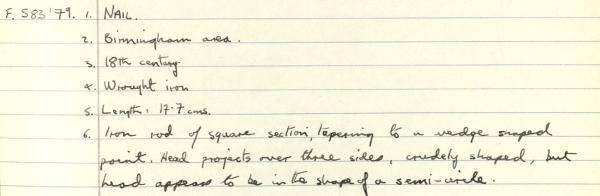 F. S83'79. 1. NAIL.
2. Birmingham area.
3. 18th century
4. Wrought iron
5. Length: 17.7 cms.
6. Iron rod of square section, tapering to a wedge shaped
point. Head projects over three sides, crudely shaped, but
head appears to be in the shape of a semi-circle.